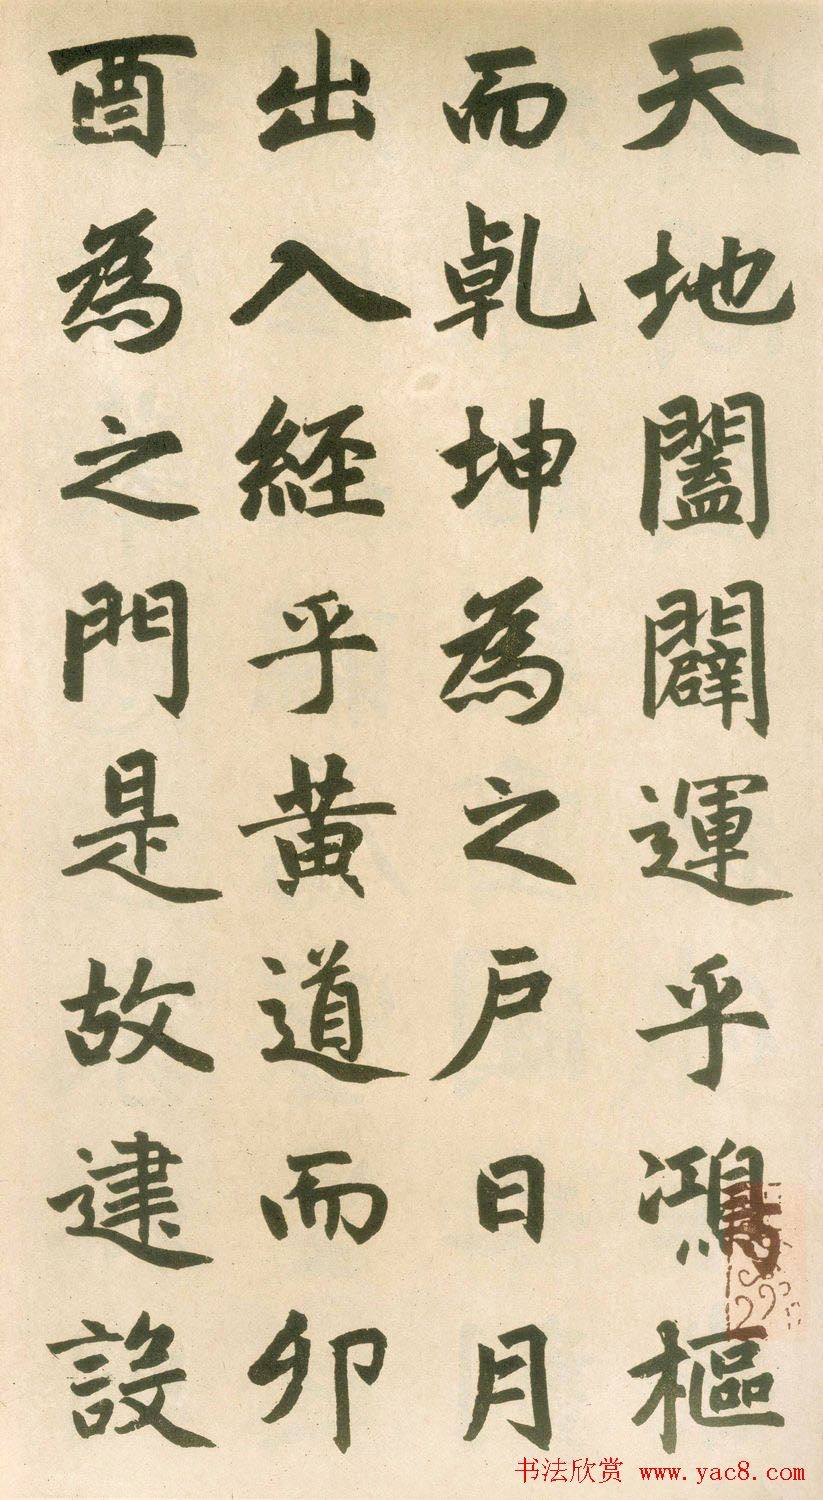 天地闔闢運乎鴻樞
而乹坤為之戶日月
出入經乎黃道而卯
酉為之門是故建設
书法欣赏 www.yac8.com